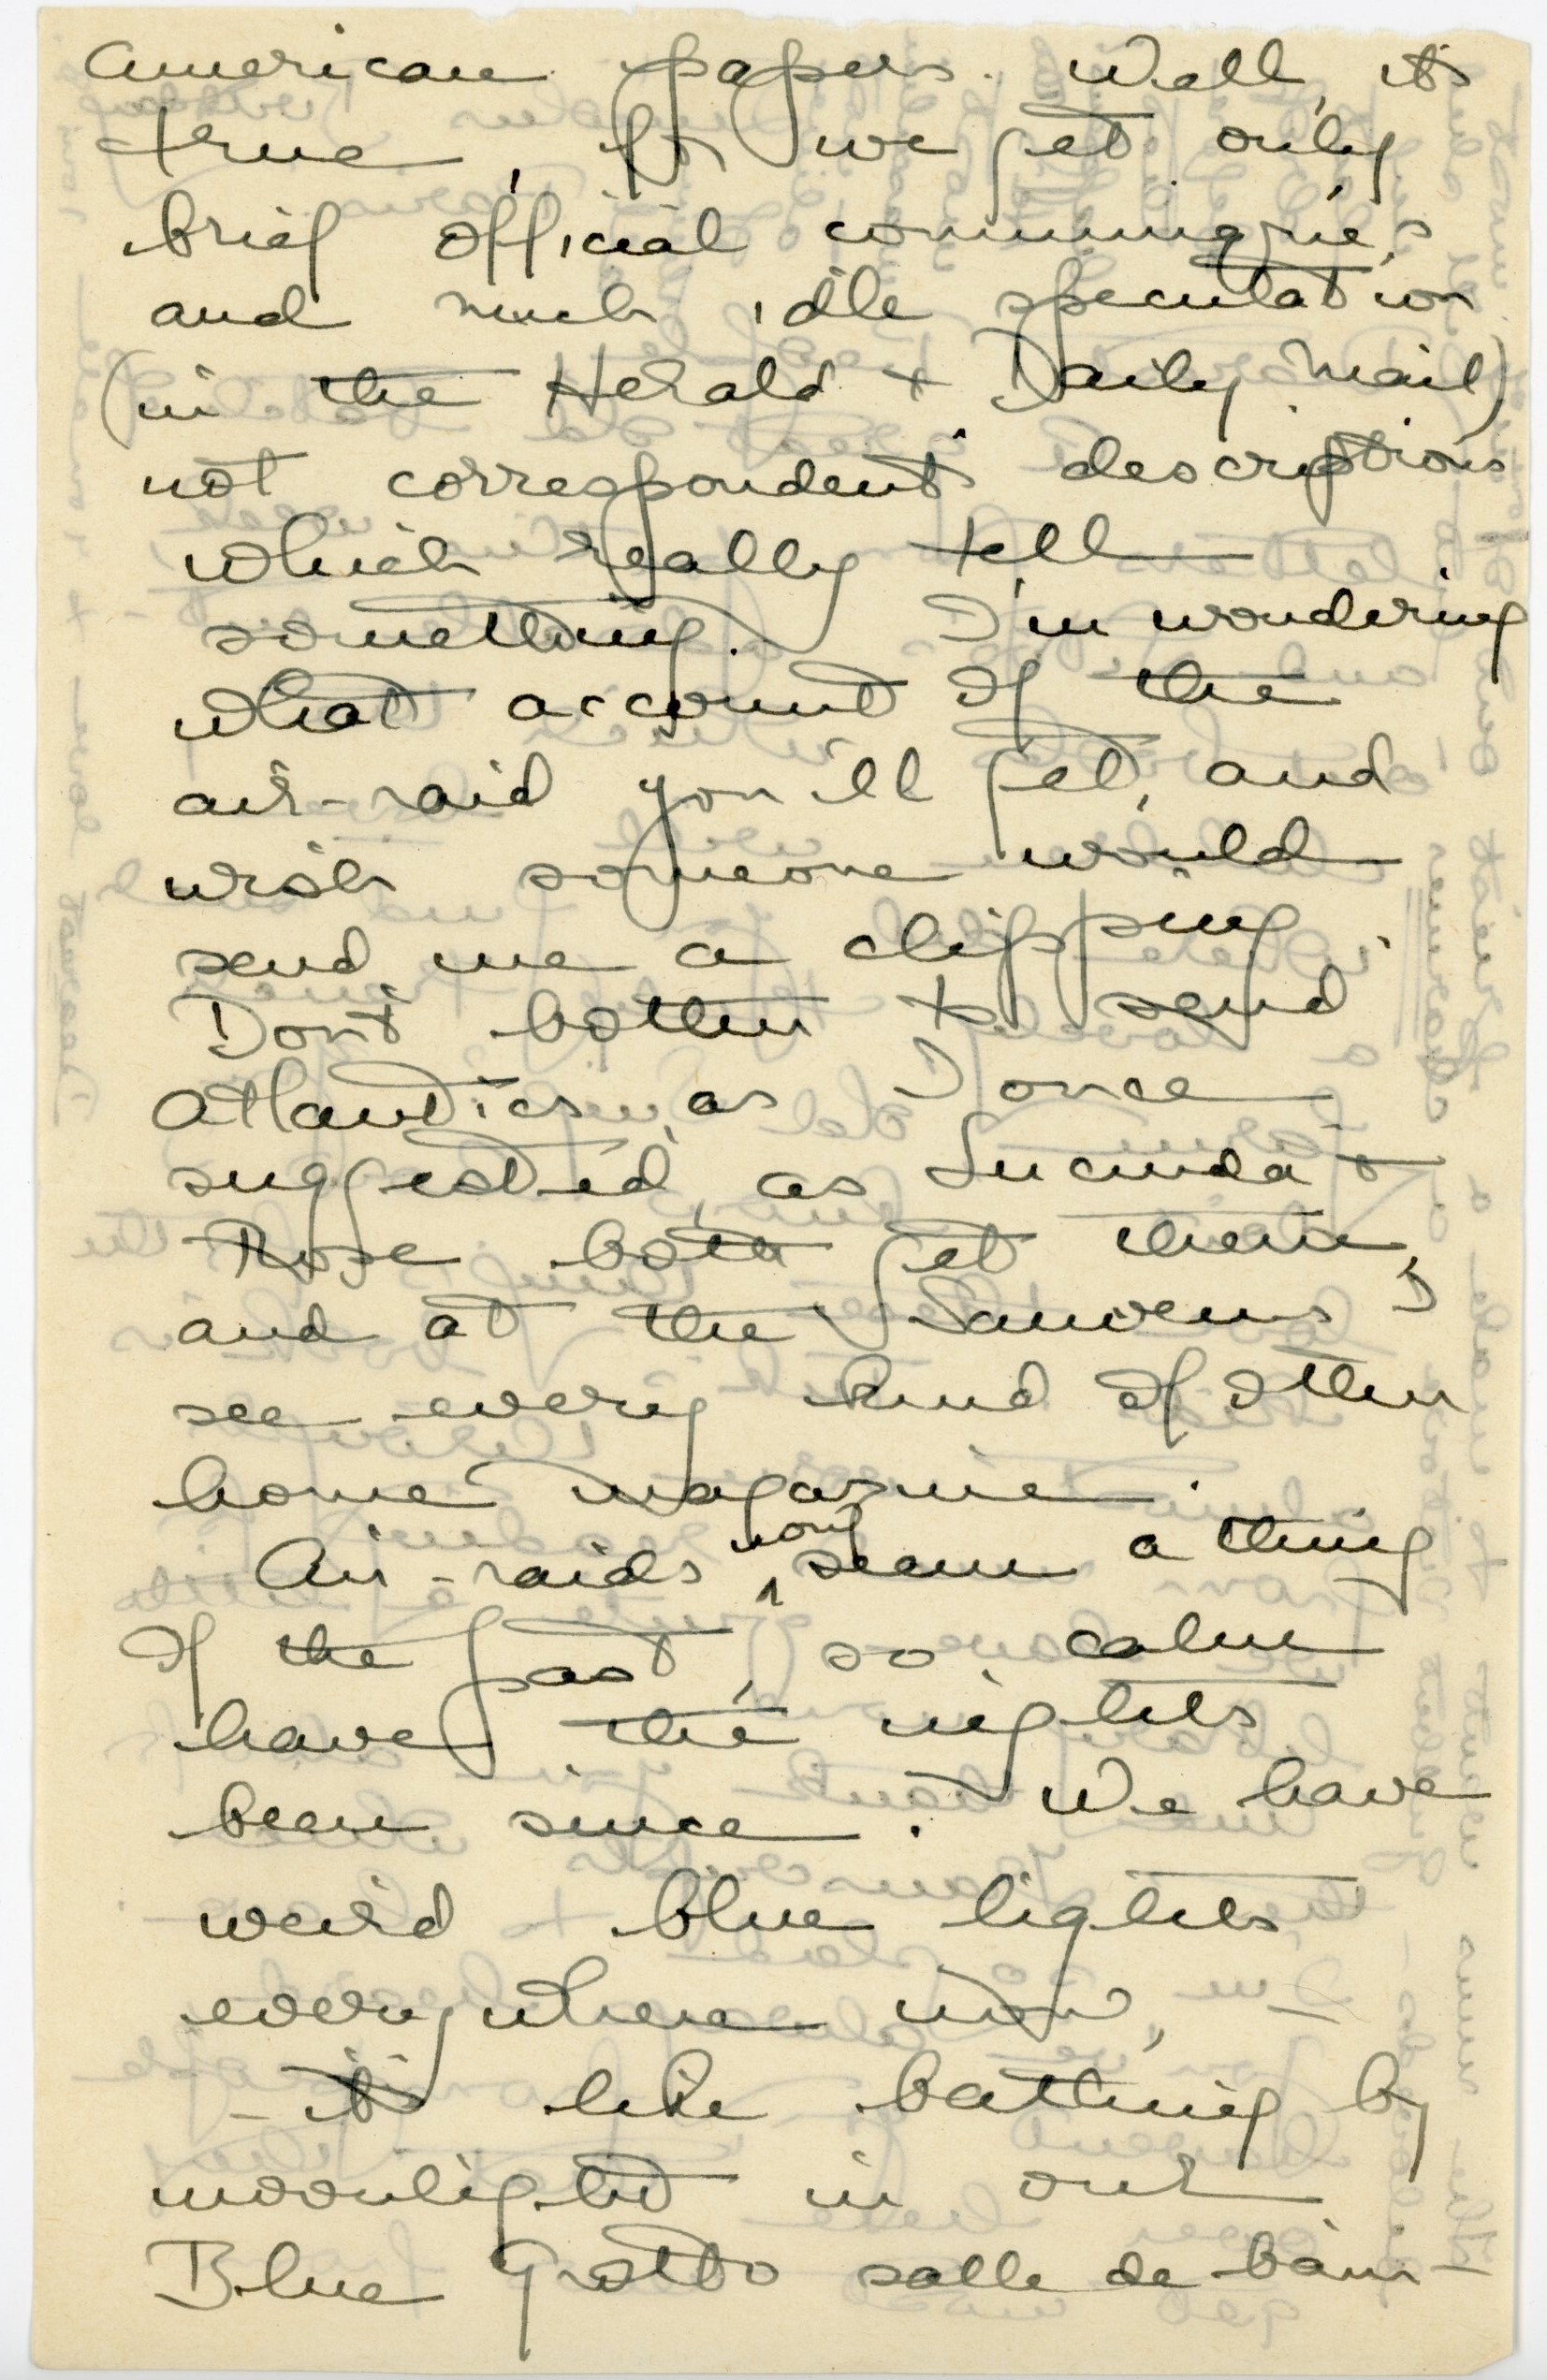 American papers. Well, it's
true, for we get only
brief official communiqués
and much idle speculation
(in the Herald + Daily Mail)
not correspondents descriptions
which really tell
something. I'm wondering
what account of the
air-raid you'll get, and
wish someone would
send me a clipping.
Don't bother to send
Atlantics, as I once
suggested, as Lucinda +
Rose both get them,
and at the I
see every kind of other
home magazine.
Air-raids now seem a thing
of the past, so calm
have the nights
been since. We have
weird blue lights
everywhere now,
- it's like bathing by
moonlight in our
Blue Grotto salle de bain -